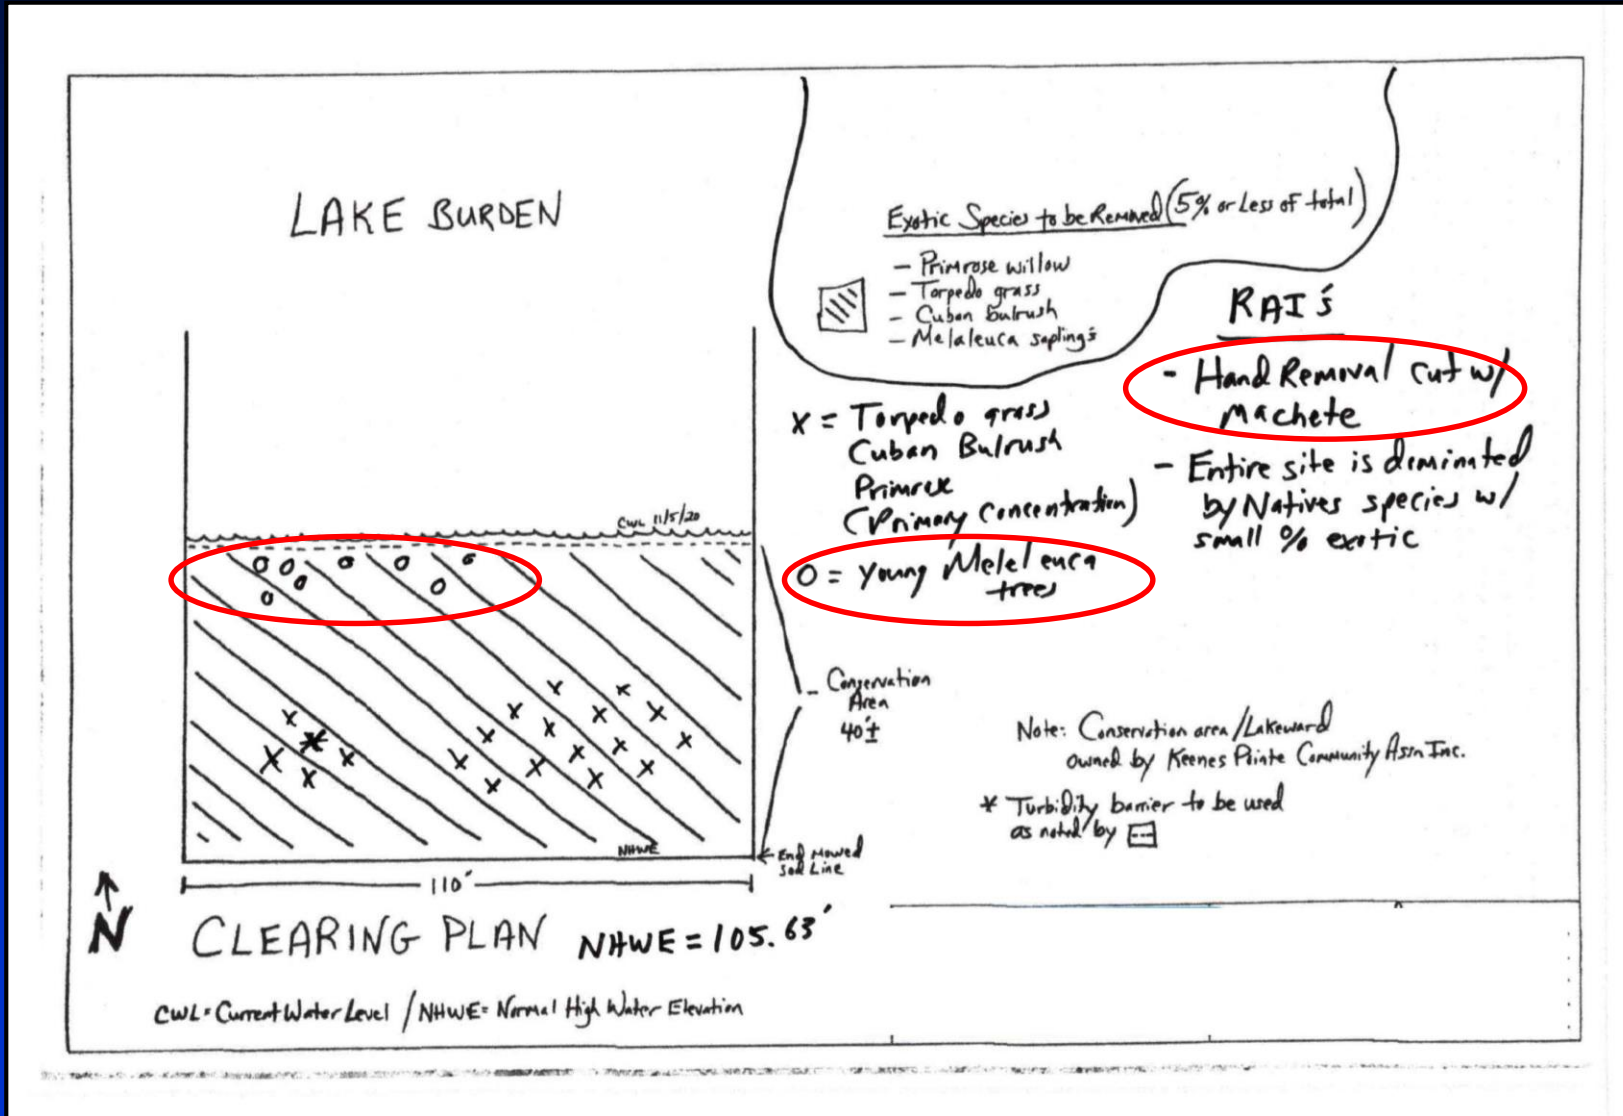 LAKE BURDEN
Exotic Species to be Removed (5% or Less of total)
- Primrose willow
- Torpedo grass
- Cuban bulrush
- Melaleuca saplings
RAI's
- Hand Removal cut w/
machete
- Entire site is dominated
by Natives species w/
small % exotic
X = Torpedo grass
Cuban Bulrush
Primrose
(Primary Concentration)
O = Young Meleleuca
trees
CWL 11/5/20
- Conservation
Area
40'±
Note: Conservation area/Lakeward
owned by Keenes Pointe Community Assn Inc.
* Turbidity barrier to be used
as noted by
NHWE
End Mowed
Sod Line
110'
N
CLEARING PLAN NHWE = 105.63'
CWL = Current Water Level / NHWE = Normal High Water Elevation